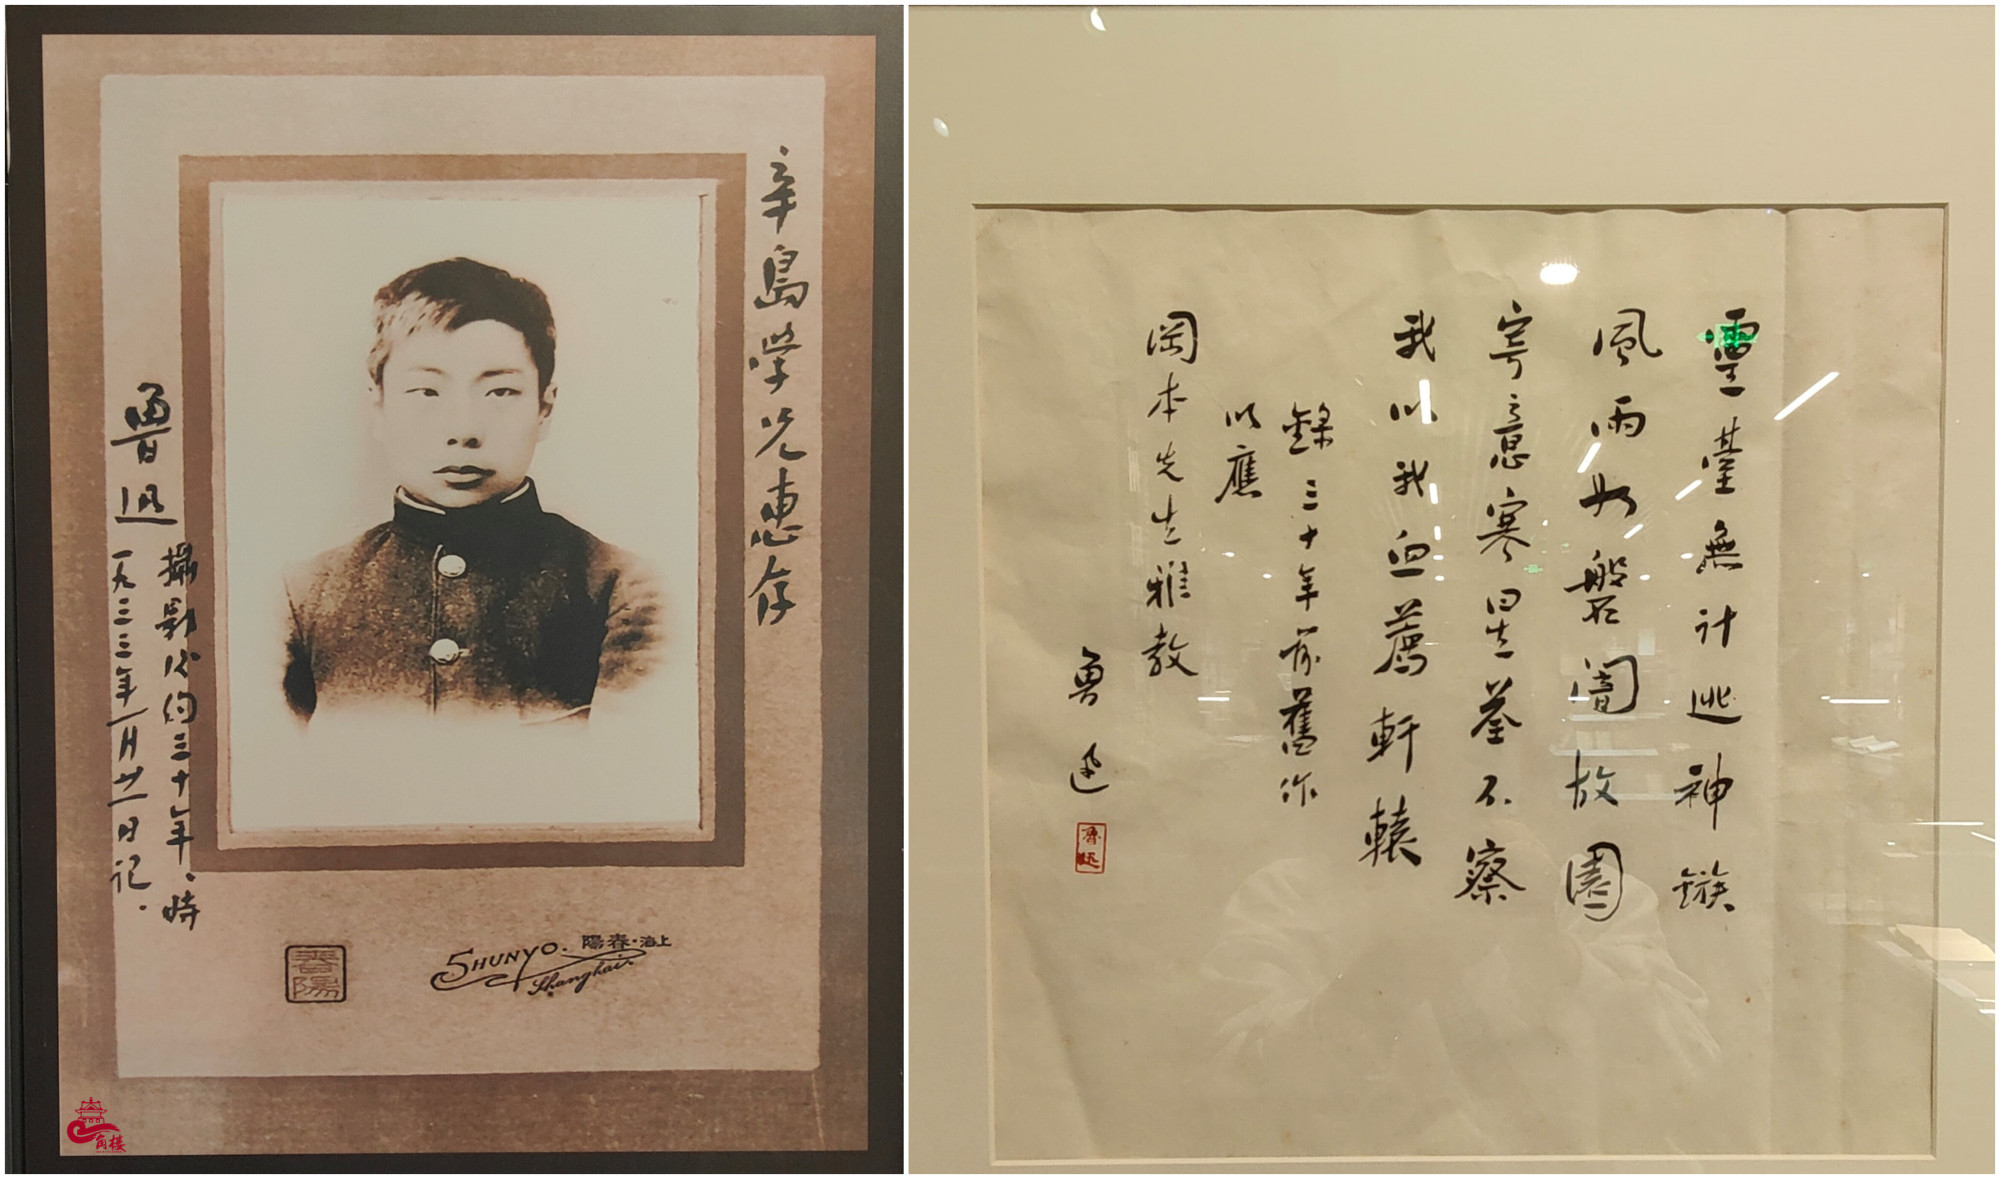 辛島学兄惠存
魯迅
攝影後約三十年、時
一九三三年一月廿一日记.
春陽
SHUNYO.
上海・春陽
Shanghai.
角楼
靈臺無計逃神鏃
風雨如磐闇故園
寄意寒星荃不察
我以我血薦軒轅
錄三十年前舊作
以應
岡本先生雅教
魯迅
魯迅